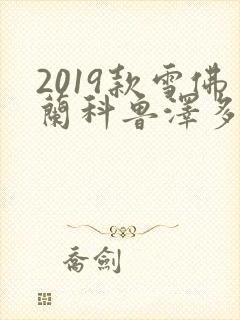 2019款雪佛
蘭科魯澤多
喬劍